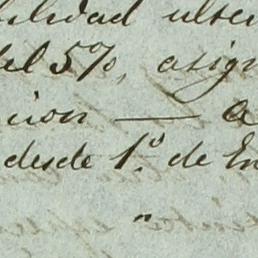 bilidad ulter
del 5%, asign
cion — a
desde 1.º de En
"